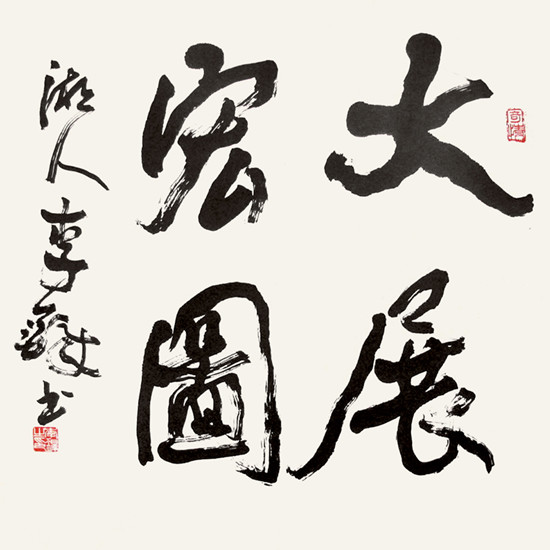 大展
宏圖
湘人李
書